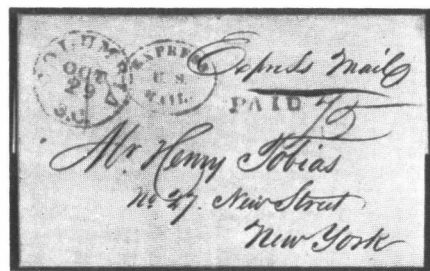 COLUMBIA
OCT
29
S.C.
EXPRESS
U.S.
MAIL.
Express Mail
PAID 75
Mr. Henry Tobias
No 27. New Street
New York